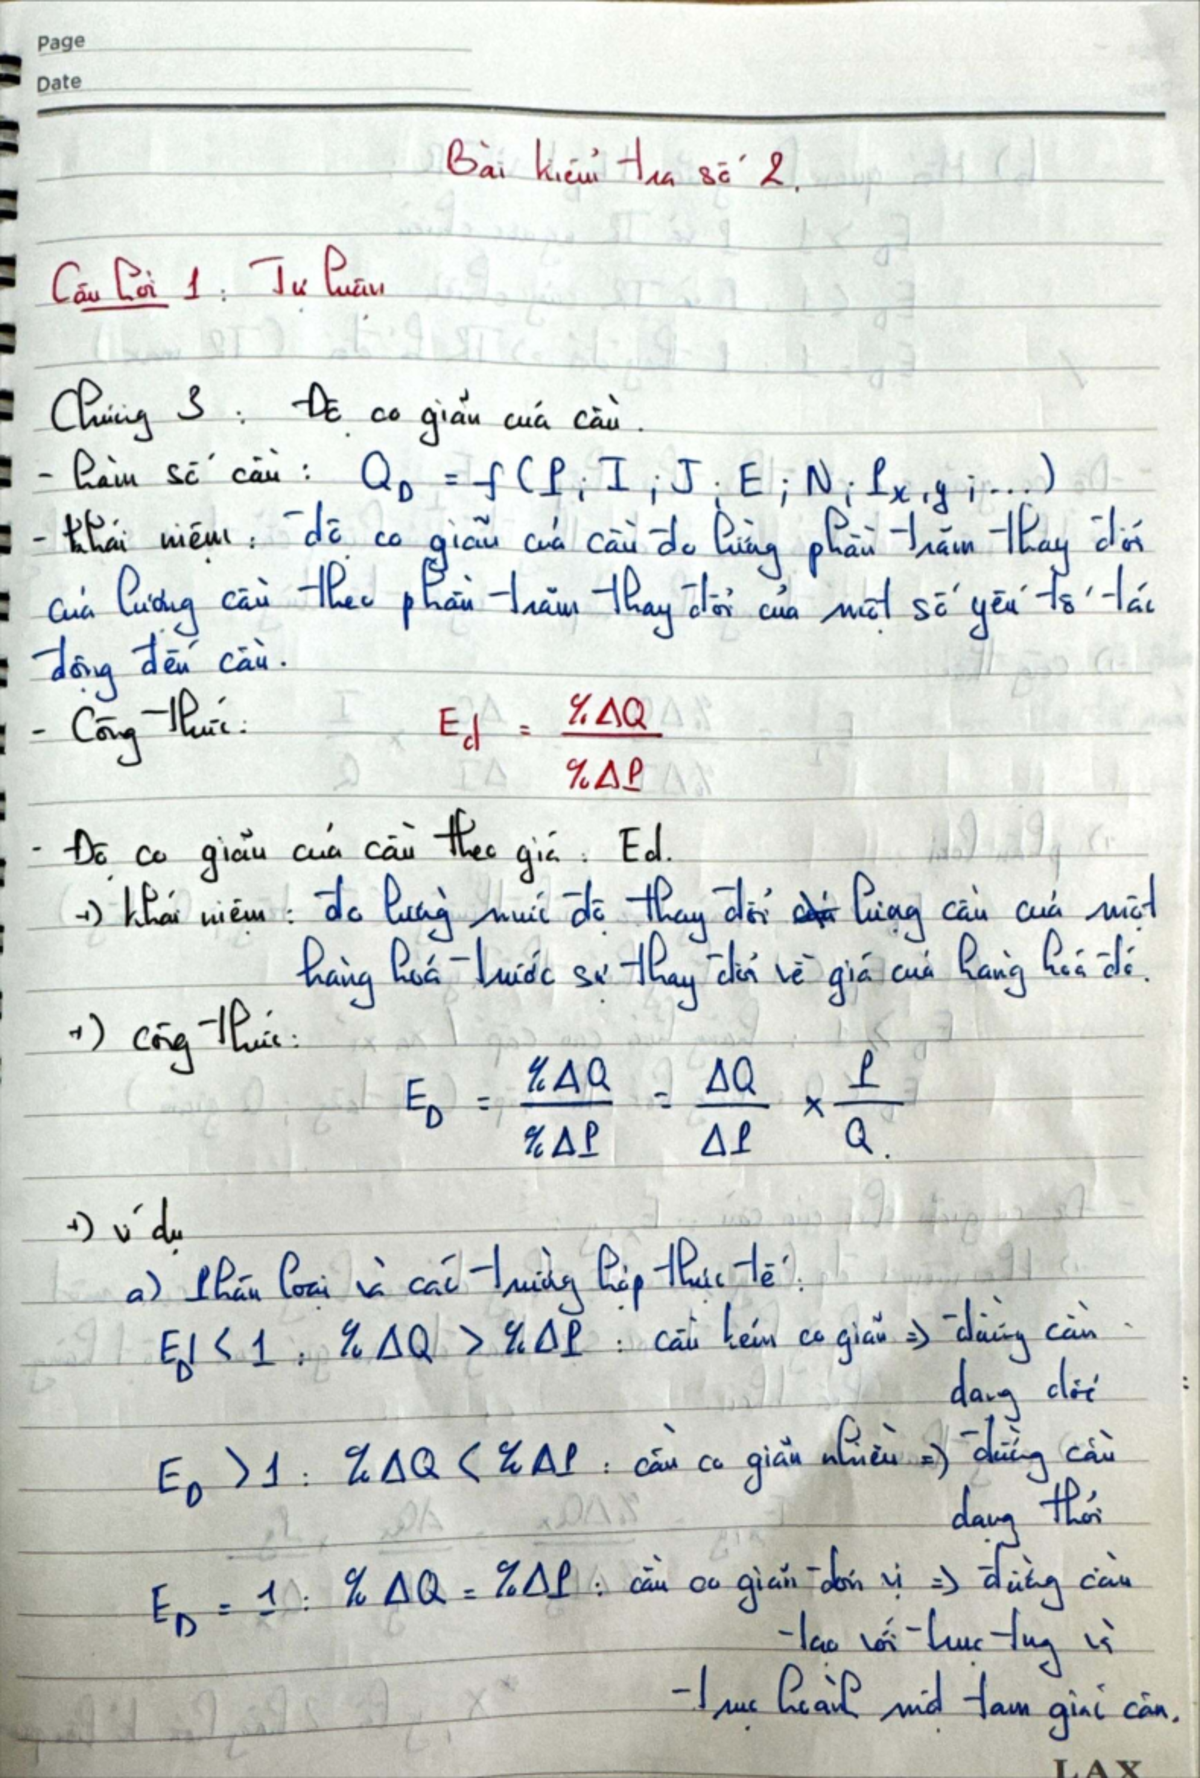 Page
Date
Bài kiểm tra số 2.
Câu hỏi 1 : Tự luận
Chương 3 : Độ co giãn của cầu.
- Hàm số cầu : Q_D = f(P; I; J; E; N; P_x,y; ...)
- Khái niệm : độ co giãn của cầu đo lường phần trăm thay đổi
của lượng cầu theo phần trăm thay đổi của một số yếu tố tác
động đến cầu.
- Công thức: E_d = %ΔQ / %ΔP
- Độ co giãn của cầu theo giá : Ed.
+) Khái niệm : đo lường mức độ thay đổi lượng cầu của một
hàng hoá trước sự thay đổi về giá của hàng hoá đó.
+) Công thức:
E_D = %ΔQ / %ΔP = ΔQ / ΔP × P / Q.
+) ví dụ
a) Phân loại và các trường hợp thực tế :
E_D < 1 : %ΔQ > %ΔP : cầu kém co giãn => đường cầu
dạng dốc
E_D > 1 : %ΔQ < %ΔP : cầu co giãn nhiều => đường cầu
dạng thoải
E_D = 1 : %ΔQ = %ΔP : cầu co giãn đơn vị => đường cầu
tạo với trục tung và
trục hoành một tam giác cân.
LAX